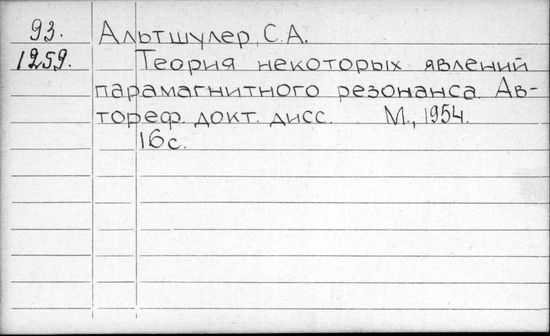 93. Альтшулер, С.А.
1259. Теория некоторых явлений
парамагнитного резонанса. Ав-
тореф. докт. дисс. М., 1954.
16с.